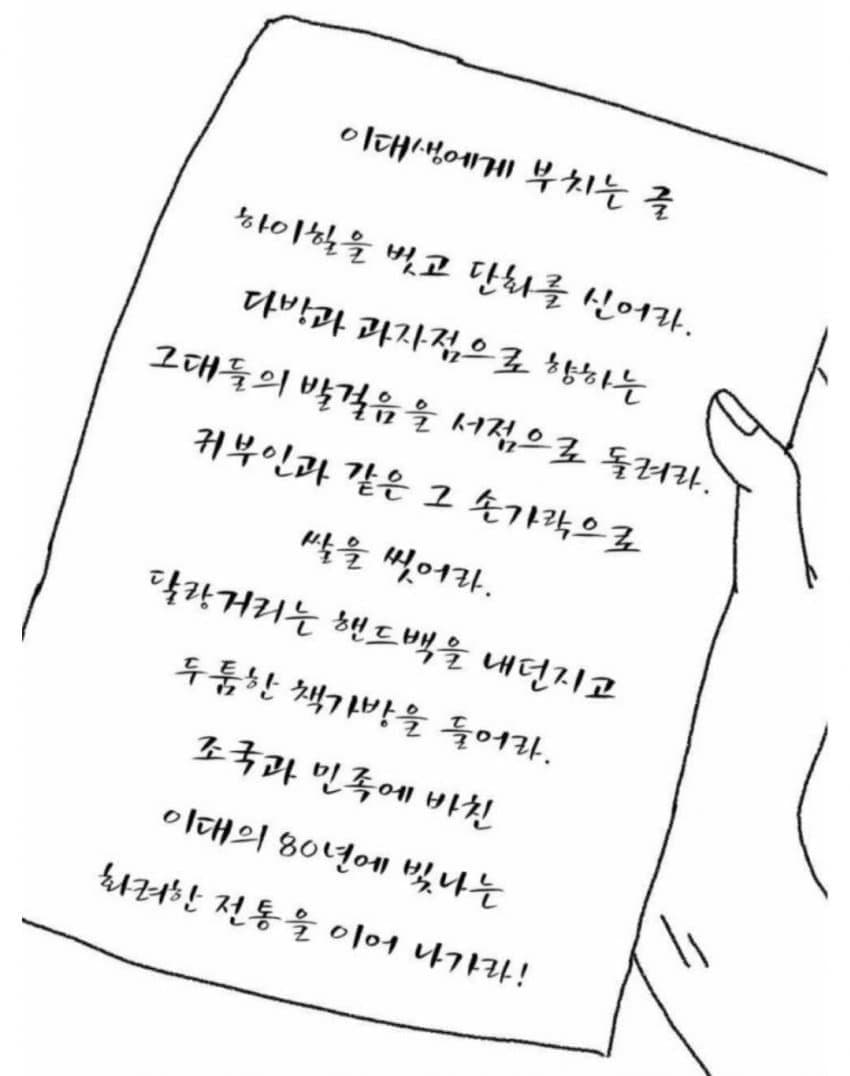 이대생에게 부치는 글
하이힐을 벗고 단화를 신어라.
다방과 과자점으로 향하는
그대들의 발걸음을 서점으로 돌려라.
귀부인과 같은 그 손가락으로
쌀을 씻어라.
달랑거리는 핸드백을 내던지고
두툼한 책가방을 들어라.
조국과 민족에 바친
이대의 80년에 빛나는
화려한 전통을 이어 나가라!